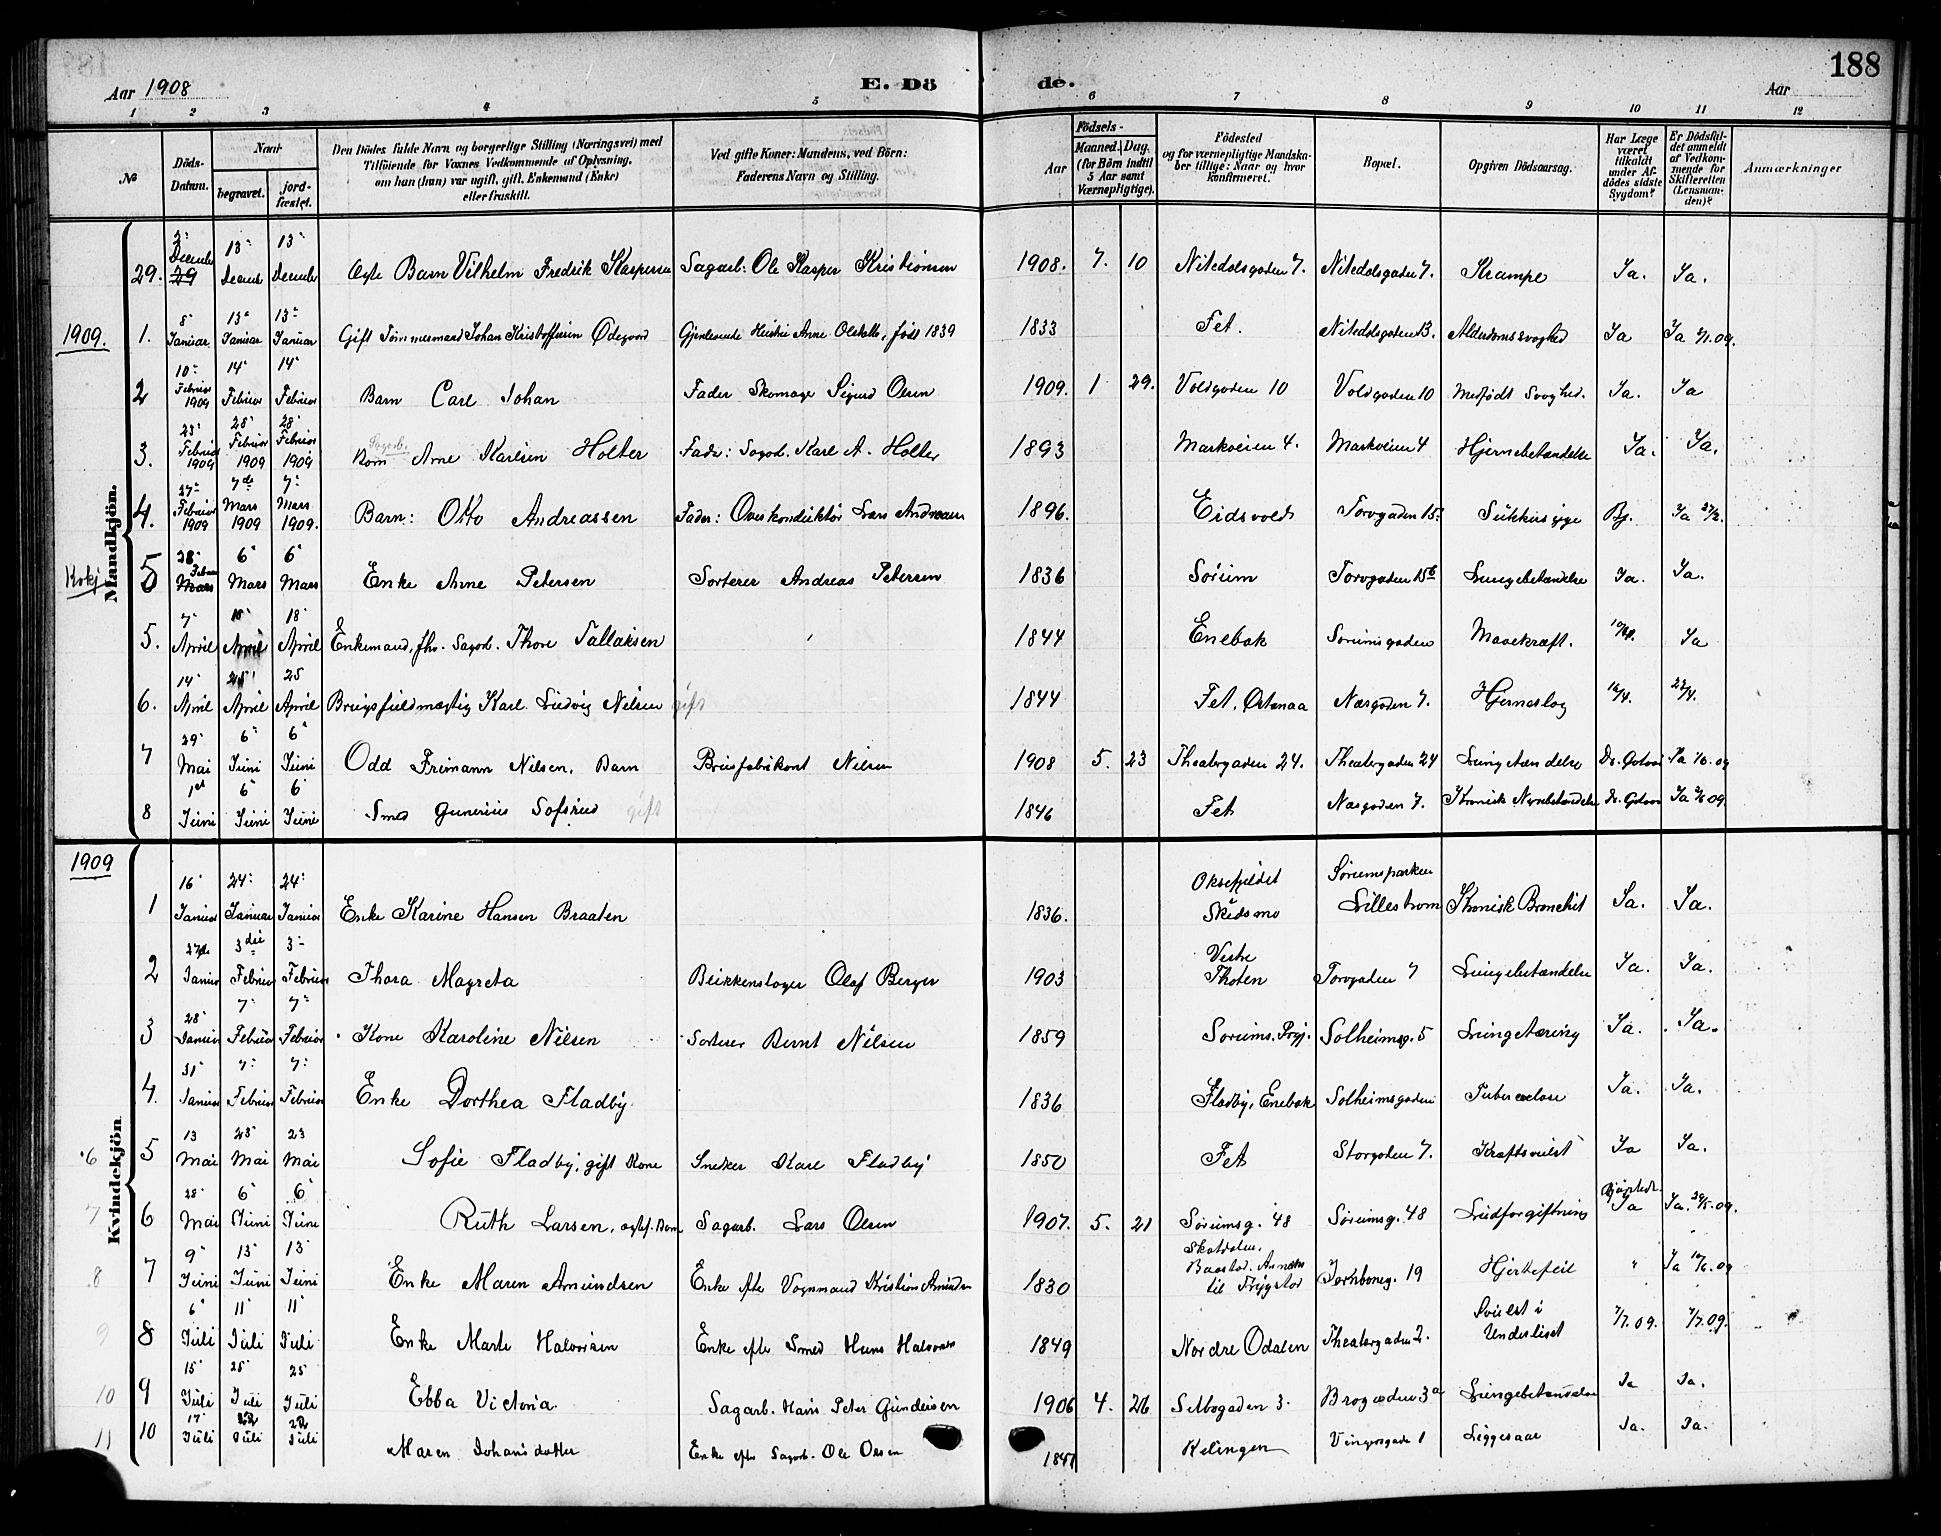 188
Aar 1908
E. Dö de.
Aar
1 2 3 4 5 6 7 8 9 10 11 12
No
Döds-Datum.
Naar
begravet.
jordfæstet.
Den Dödes fulde Navn og borgerlige Stilling (Næringsvei) med
Tilföiende for Voxnes Vedkommende af Oplysning,
om han (hun) var ugift, gift, Enkemand (Enke)
eller fraskilt.
Ved gifte Koner: Mandens, ved Börn:
Faderens Navn og Stilling.
Födsels-
Aar
Maaned. Dag.
(for Börn indtil
5 Aar samt
Værnepligtige).
Födested
og for værnepligtige Mandska-
ber tillige: Naar og hvor
konfirmeret.
Bopæl.
Opgiven Dödsaarsag.
Har Læge
været
tilkaldt
under Af-
dödes sidste
Sygdom?
Er Dödsfal-
det anmeldt
af Vedkom-
mende for
Skifteretten
(Lensman-
den)?
Anmærkninger
Mandkjön.
29. 3' December 29 13' December 13' December Ægte Barn Vilhelm Fredrik Kaspersen Sagarb: Ole Kasper Kristiansen 1908. 7. 10 Nitedalsgaden 7. Nitedalsgaden 7. Krampe Ja. Ja.
1909.
1. 8' Januar 13' Januar 13' Januar Gift Tömmermand Johan Kristoffersen Ödegaard Gjenlevende Hustru Anne Olsdatter, född 1839 1833 Fet. Nitedalsgaden 13. Alderdomssvaghed Ja Ja 9/1.09.
2 10' Februar 1909 14' Februar 14' Februar Barn Carl Johan Fader Skomager Sigurd Olsen 1909. 1 29. Voldgaden 10 Voldgaden 10 Medfödt Svaghed. Ja. Ja
3. 23' Februar 1909 28' Februar 1909 28' Februar 1909 Sagarb. Barn Arne Karlsen Holter Fader: Sagarb. Karl A. Holter 1893 Markveien 4. Markveien 4 Hjernebetændelse Ja. Ja.
4. 27' Februar 1909 7de Mars 1909 7' Mars 1909. Barn: Otto Andreassen Fader: Overkonduktör Lars Andreassen 1896. Eidsvold Torvgaden 15. Sukkersyge Bj. Ja 27/2.
Kvkj
5 28' Februar Mars 6' Mars 6' Mars Enke Anne Petersen Sorterer Andreas Petersen 1836 Sörum Torvgaden 15b Lungebetændelse Ja. Ja.
5. 7' April 18' April 18' April Enkemand, fhv. Sagarb. Thore Tallaksen 1844 Enebak Sörumsgaden Mavekræft. Ja
6. 14' April 25' April 25 April Brugsfuldmægtig Karl Ludvig Nilsen gift 1844 Fet, Östenaa Næsgaden 7. Hjerneslag 16/4. 22/4.
7 29' Mai 6' Juni 6' Juni Odd Frimann Nilsen. Barn Brusfabrikant Nilsen 1908 5. 23 Theatergaden 24. Theatergaden 24 Ja 1/6.09
8 1st Juni 6' Juni 6' Juni Smed Gunerius Sofsrud gift 1846 Fet Næsgaden 7. Kronisk Nyrebetændelse Ja 09
Kvindekjön
1909
1 16' Januar 24' Januar 24' Januar Enke Karine Hansen Braaten 1836. Oksefjeldet Skedsmo Sörumsparken Lilleström Kronisk Bronchit Ja. Ja.
2 27de Januar 3die Februar 3' Februar Thora Magreta Blikkenslager Olaf Berger 1903 Vestre Thoten Torvgaden 7 Lungebetændelse Ja. Ja.
3 28' Januar 7' Februar 7' Februar Kone Karoline Nilsen Sorterer Bernt Nilsen 1859 Sörums. Prgj. Solheimsg. 5 Lungetæring Ja. Ja.
4. 31' Januar 7' Februar 7' Februar Enke Dorthea Fladby. 1836 Fladby, Enebak Solheimsgaden Tuberculose Ja. Ja.
6 5 13 Mai 23' Mai 23 Mai Sofie Fladby, gift Kone Snekker Karl Fladby 1850 Fet Storgaden 7. Kraftsvulst Ja Ja.
7 6 28' Mai 6' Juni 6' Juni Ruth Larsen, ægtef. Barn Sagarb. Lars Olsen 1907. 5. 21 Sörumsg. 48 Sörumsg. 48 Ludforgiftning Ja Ja. 29/5.09.
8 7 9' Juni 13' Juni 13' Juni Enke Maren Amundsen Enke efter Vognmand Kristian Amundsen 1830 Skotdalen, Baastad. Annex til Trygstad Jernbaneg. 19 Hjertefeil " Ja 10/6.09
9 8 6' Juli 11' Juli 11' Juli Enke Marte Halvorsen Enke efter Smed Hans Halvorsen 1849 Nordre Odalen Theatergaden 2. Svulst i Underlivet 7/7.09. 7/7.09.
10 9 15' Juli 25' Juli 25' Juli Ebba Victoria Sagarb. Hans Peter Gundersen 1906 4. 26 Selbogaden 3. Brogaden 3a Lungebetændelse Ja Ja.
11 10 17' Juli 22 Juli 22 Juli Maren Johansdatter Enke efter Sagarb. Ole Olsen 1841 Kelingen Vingersgade 1 Liggesaar Ja. Ja.